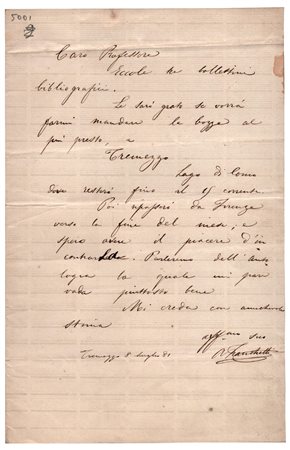 5001
Caro Professore
Eccole tre bollettini
bibliografici.
Le sarò grato se vorrà
farmi mandare le bozze al
più presto, a
Tremezzo
Lago di Como
dove resterò fino al 15 corrente
Poi ripasserò da Firenze
verso la fine del mese, e
spero avere il piacere d'in
contrarLa. Parleremo dell'Anto
logia la quale mi par
vada piuttosto bene
Mi creda con amichevole
stima
aff.mo suo
Franchetti
Tremezzo 8 luglio 81